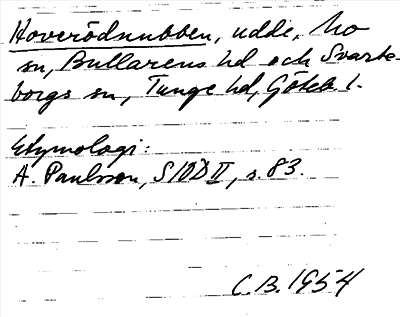 Hoverödnubben, udde, Mo
sn, Bullarens hd och Svarte-
borgs sn, Tunge hd, Göteb. l.
Etymologi:
A. Paulsson, SIOD II, s. 83.
C.B. 1954